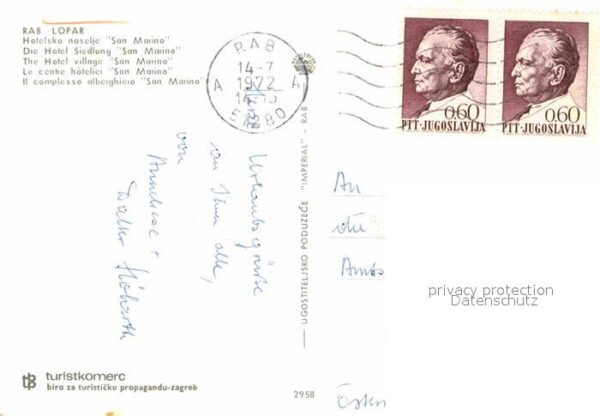 RAB LOPAR
Hotelsko naselje "San Marino"
Die Hotel Siedlung "San Marino"
The Hotel village "San Marino"
Le centre hôtelier "San Marino"
Il complesso alberghiero "San Marino"
RAB
14-7
A 1972 A
51280
0.60
PTT·JUGOSLAVIJA
0.60
PTT·JUGOSLAVIJA
Urlaubsgrüsse
an Ihnen alle,
von
Anneliese +
UGOSTITELJSKO PODUZEĆE "IMPERIAL" - RAB
An
die
privacy protection
Datenschutz
turistkomerc
biro za turističku propagandu-zagreb
2958